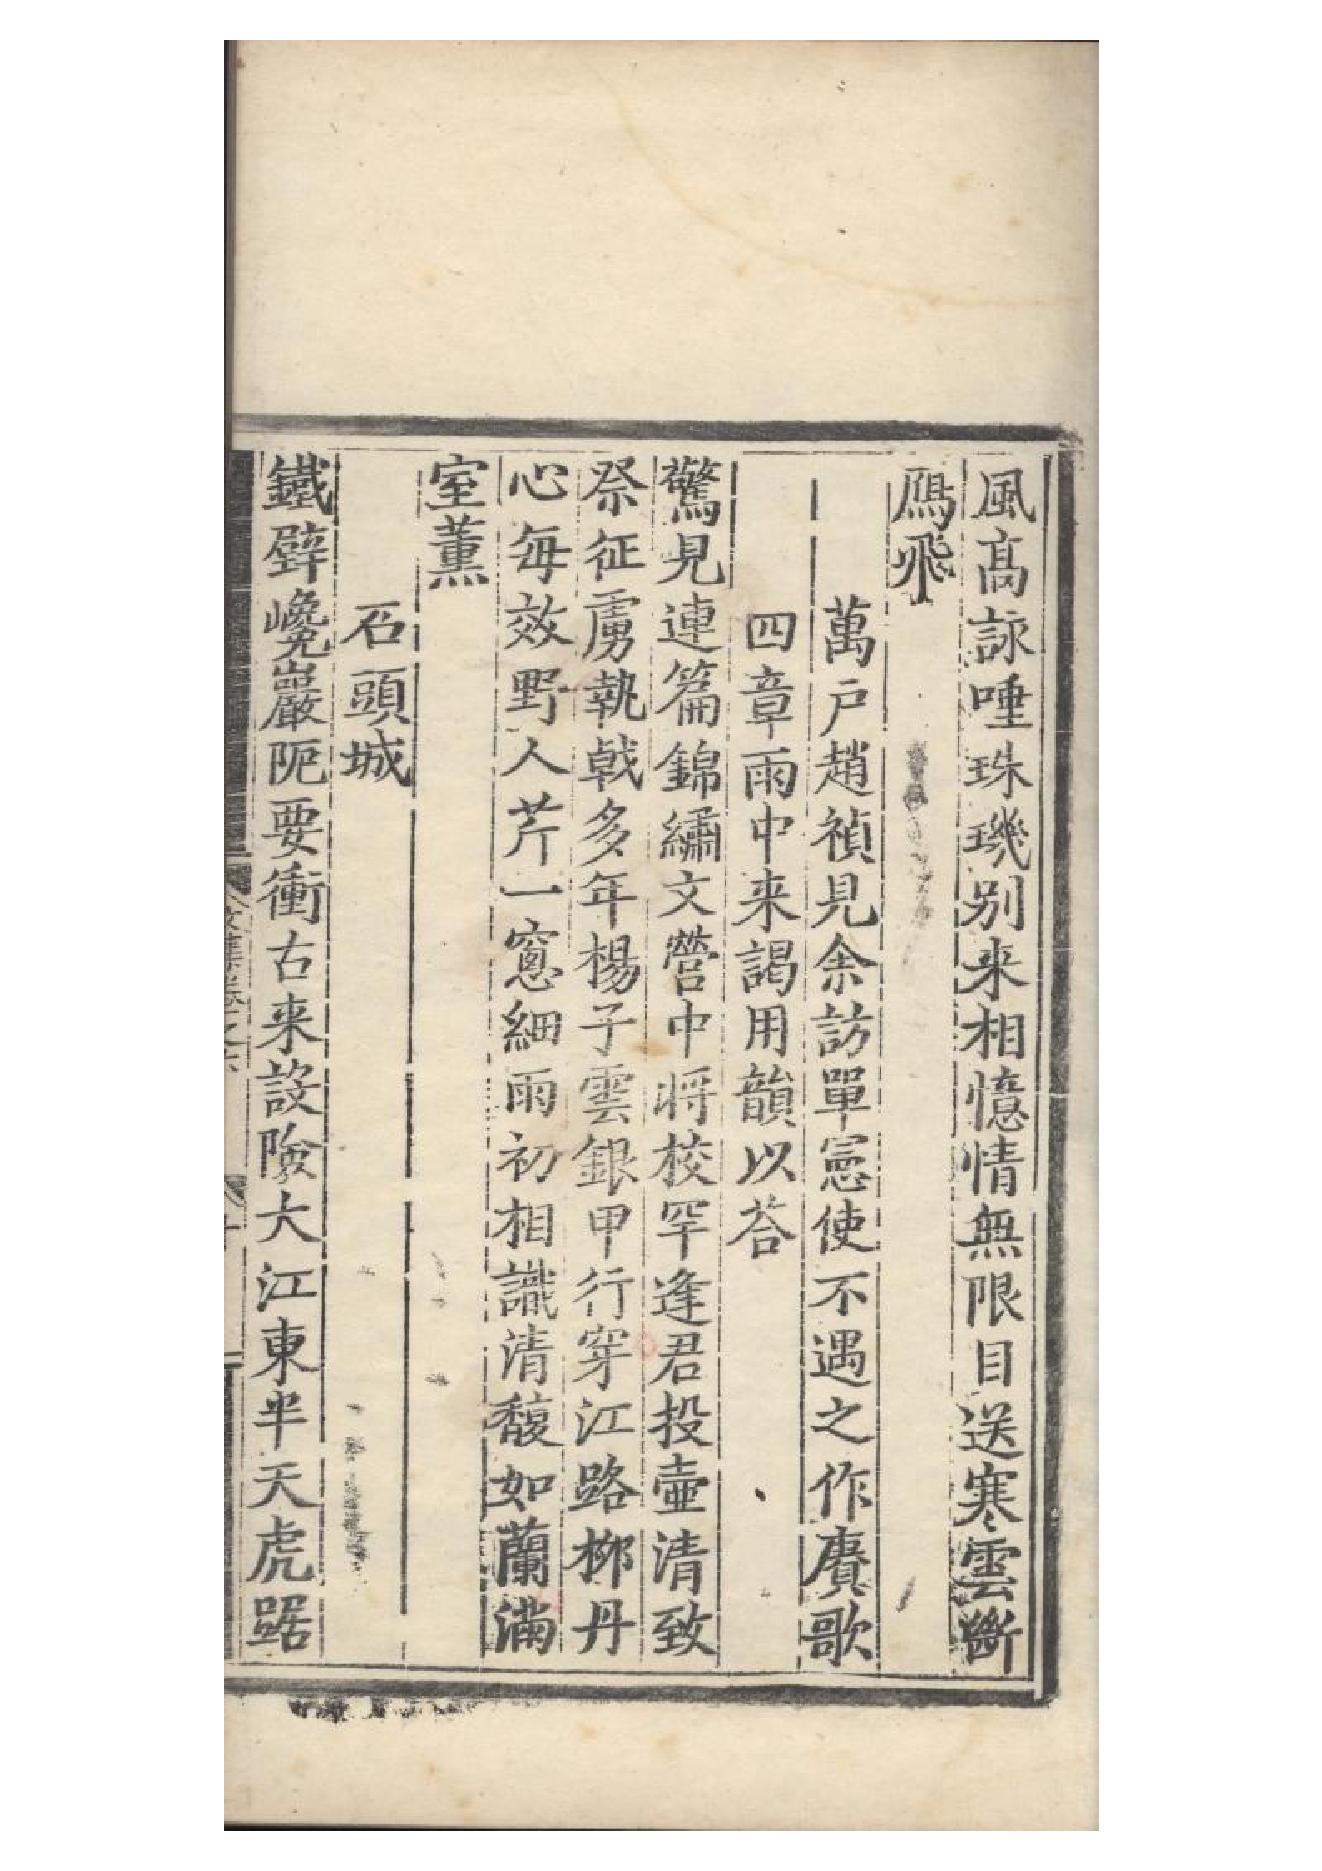 風髙詠唾珠璣别来相憶情無限目送寒雲斷
鴈飛
萬戸趙禎見余訪單憲使不遇之作賡歌
四章雨中来謁用韻以荅
驚見連篇錦繡文營中将校罕逢君投壷清致
祭征虜執戟多年楊子雲銀甲行穿江路栁丹
心每效野人芹一窻細雨初相識清馥如蘭滿
室薰
石頭城
鐵壁巉巖阨要衝古来設險大江東半天虎踞